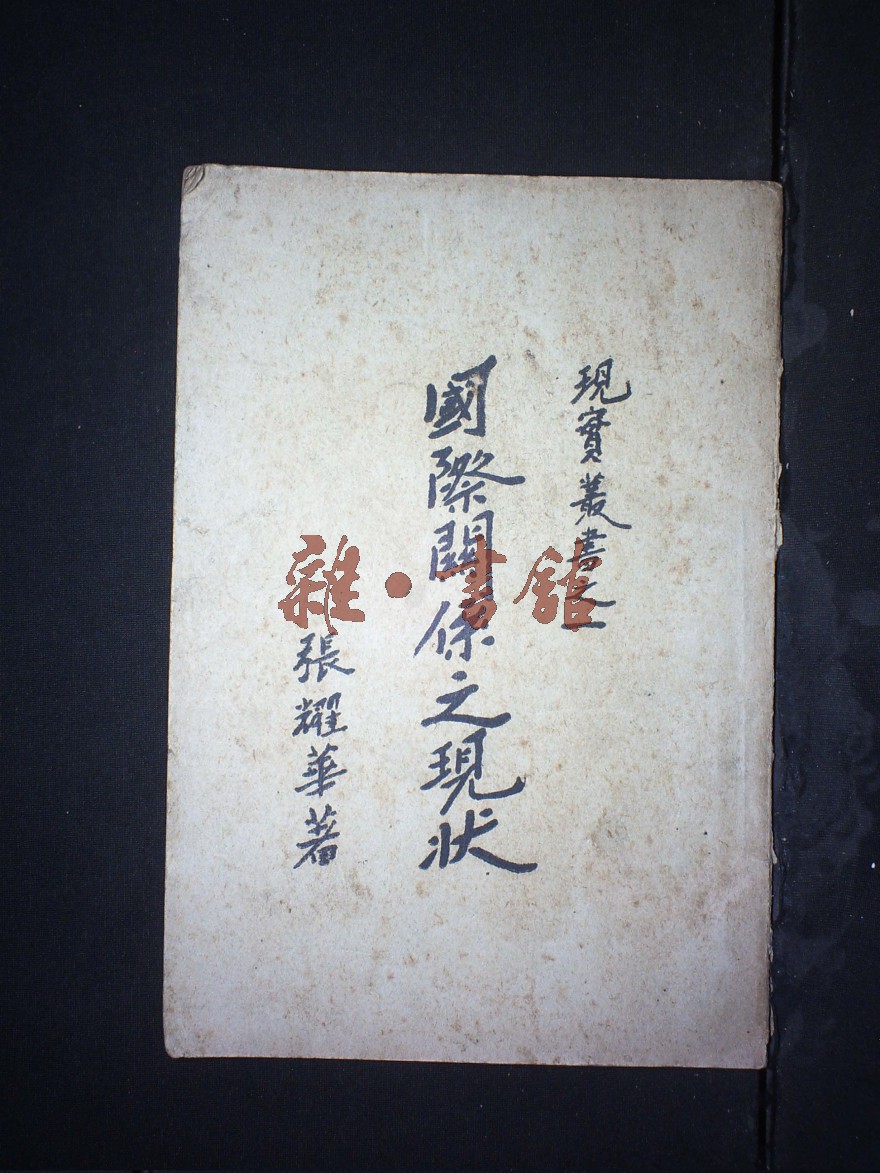 現實叢書之一
國際關係之現状
張耀華著
雜·書館